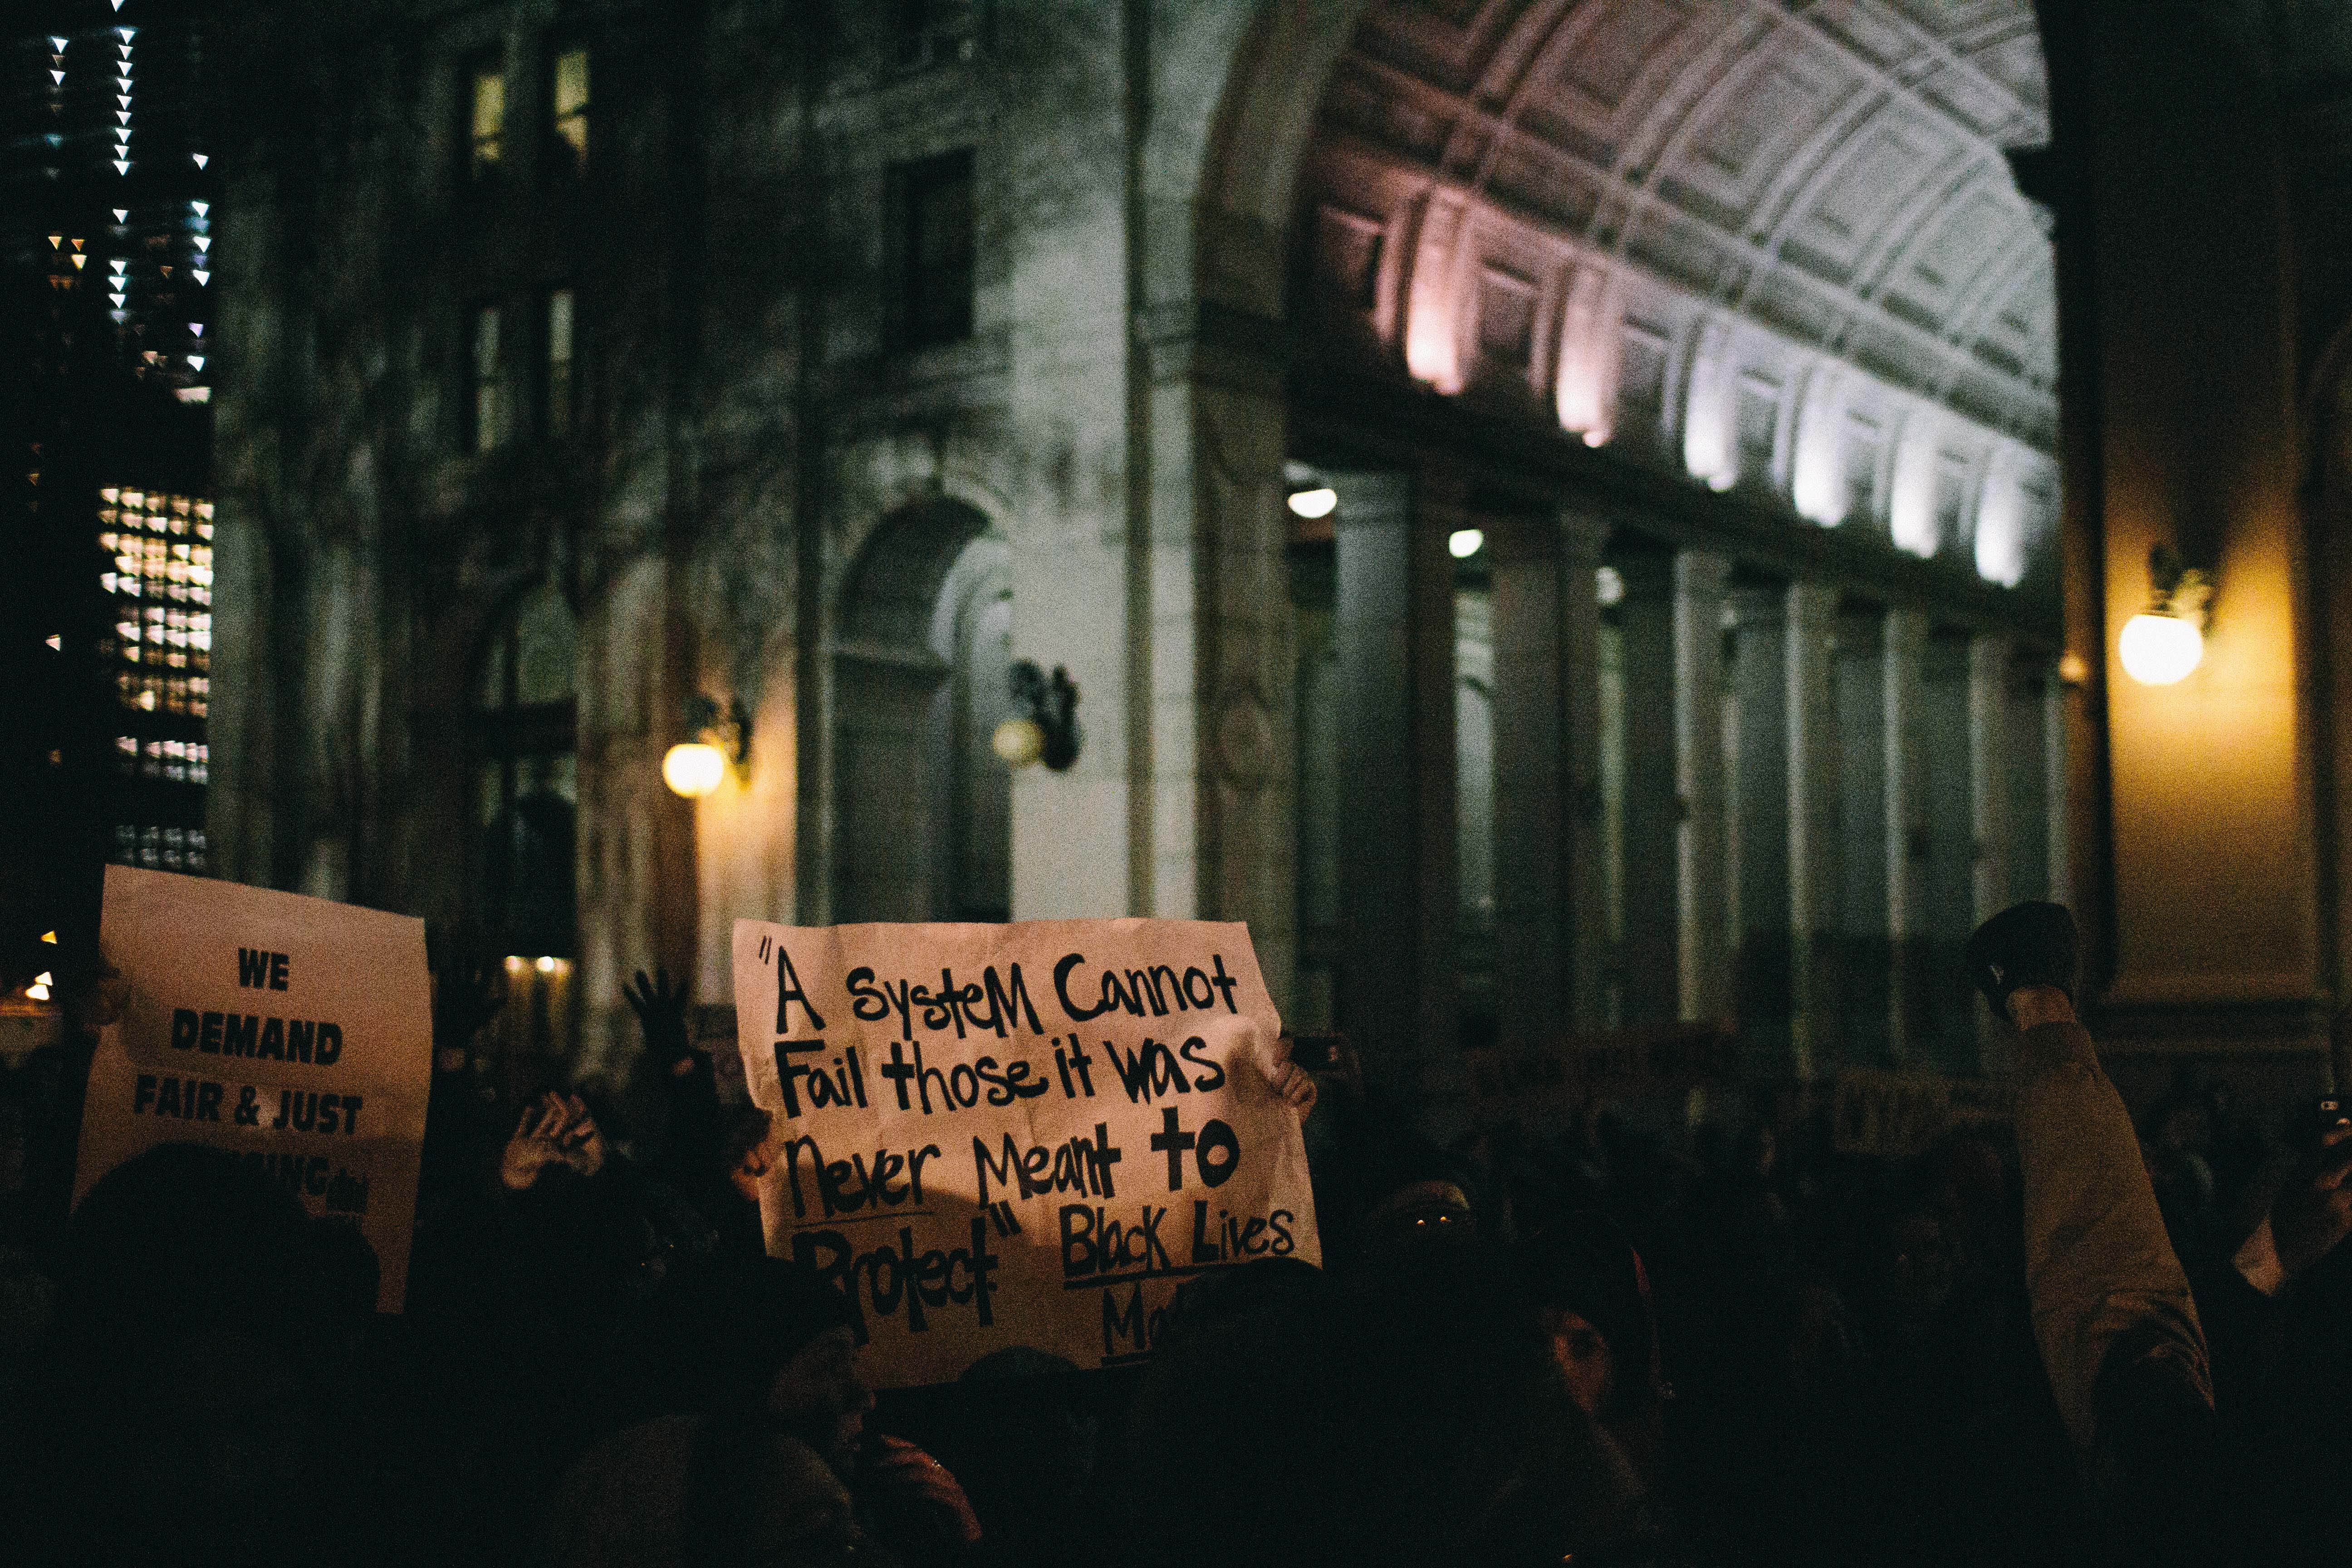 WE
DEMAND
FAIR & JUST
"A System Cannot
Fail those it was
never Meant to
Protect" Black Lives